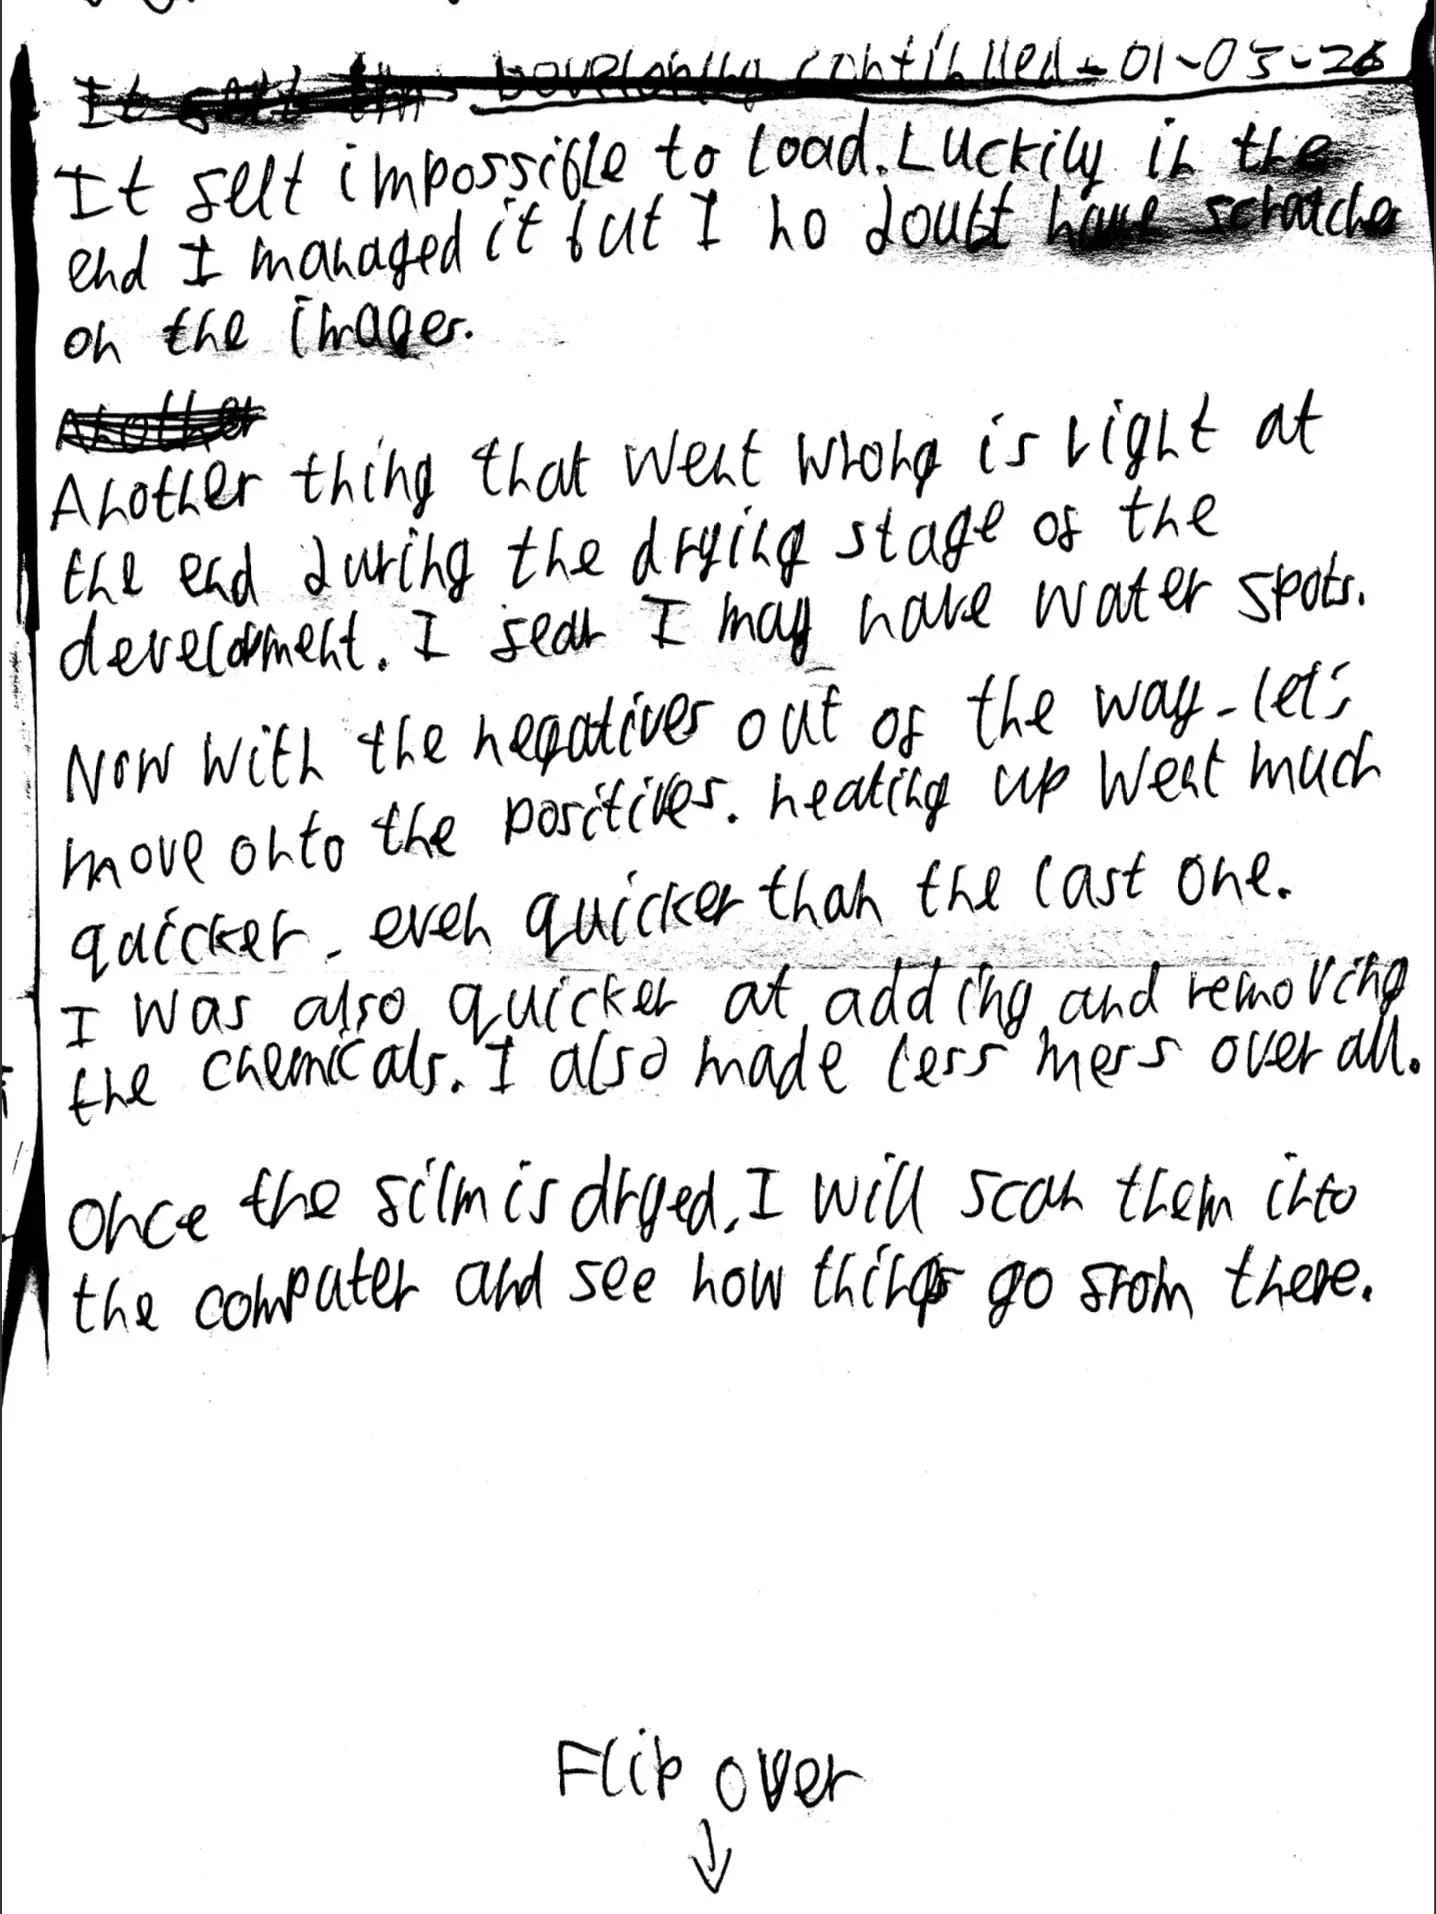 It felt this developing continued - 01-03-26
It felt impossible to load. Luckily in the
end I managed it but I no doubt have scratches
on the images.
Another
Another thing that went wrong is right at
the end during the drying stage of the
development. I fear I may have water spots.
Now with the negatives out of the way - let's
move onto the positives. heating up went much
quicker - even quicker than the last one.
I was also quicker at adding and removing
the chemicals. I also made less mess over all.
Once the film is dryed, I will scan them into
the computer and see how things go from there.
Flip over